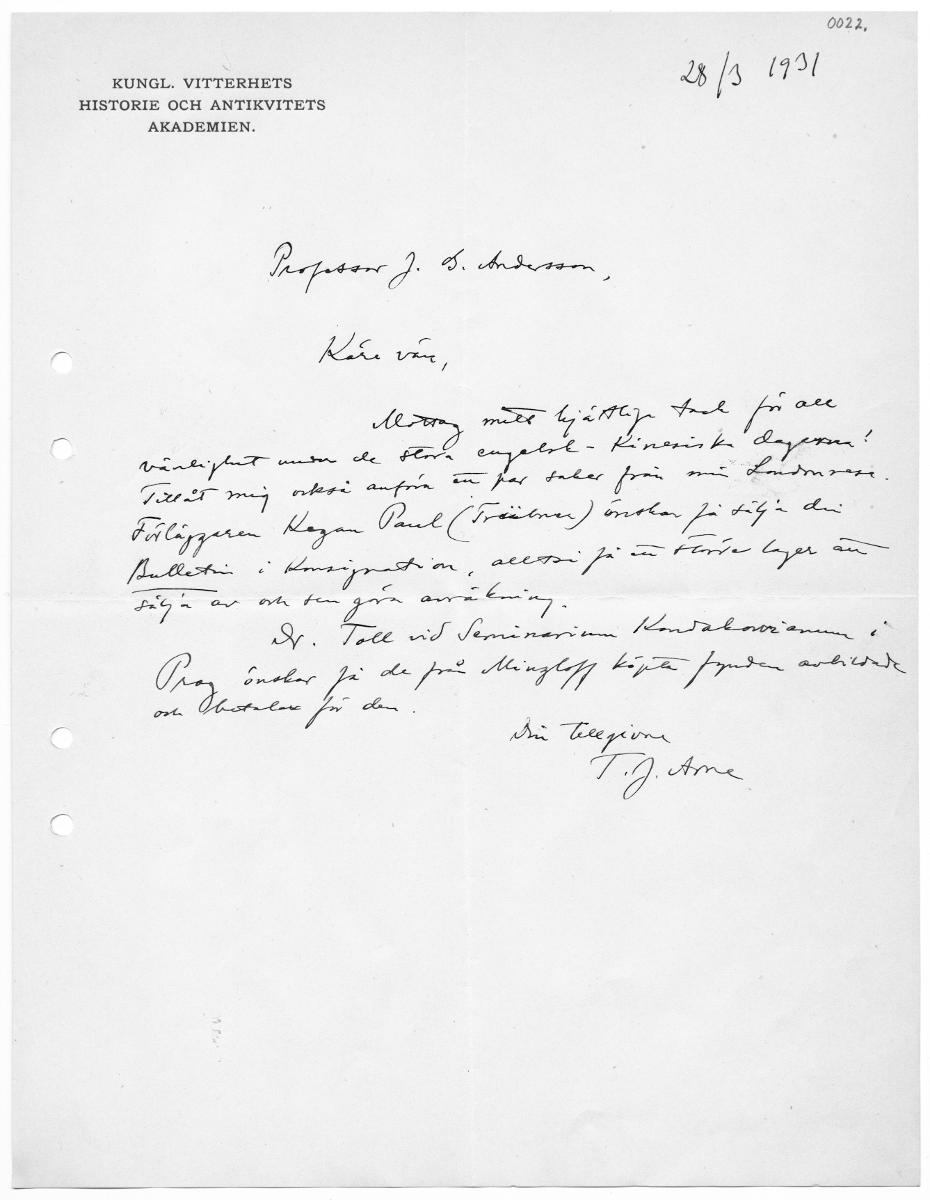 0022.
28/3 1931
KUNGL. VITTERHETS
HISTORIE OCH ANTIKVITETS
AKADEMIEN.
Professor J. G. Andersson,
Käre vän,
Mottag mitt hjärtliga tack för all
vänlighet under de stora engelsk-Kinesiska dagarna!
Tillåt mig också anföra ett par saker från min Londonresa.
Förläggaren Kegan Paul (Trübner) önskar få sälja din
Bulletin i Konsignation, alltså få ett större lager att
sälja av och sen göra avräkning.
Dr. Toll vid Seminarium Kondakovianum i
Prag önskar få de från Minzloff köpta fynden avbildade
och betalar för den.
Din tillgivne
T. J. Arne